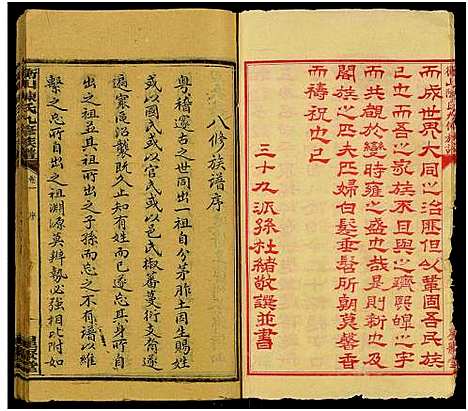 而成世界大同之治匪但以鞏固吾民族
已也而吾之家族不且與與之齊熙皡之宇
共觀於變時雍之盛也哉是則新也及其
閤族之匹夫匹婦白髮垂髫所朝莫馨香
而禱祝也
三十九派孫杜緒敬譔並書
八修族譜序
粵稽邃古之世同出一祖自分茅胙土因生賜姓
或以國氏或以官氏或以邑氏椒蕃蔓衍支裔遂
遍寰區沿襲既久人止知有姓而已遂忘其身所自
出之祖並其祖所自出之子孫而忘之不有譜以維
繫之忘所自出之祖淵源莫辨勢必強相比附如
衡山陳氏九修族譜
卷 序